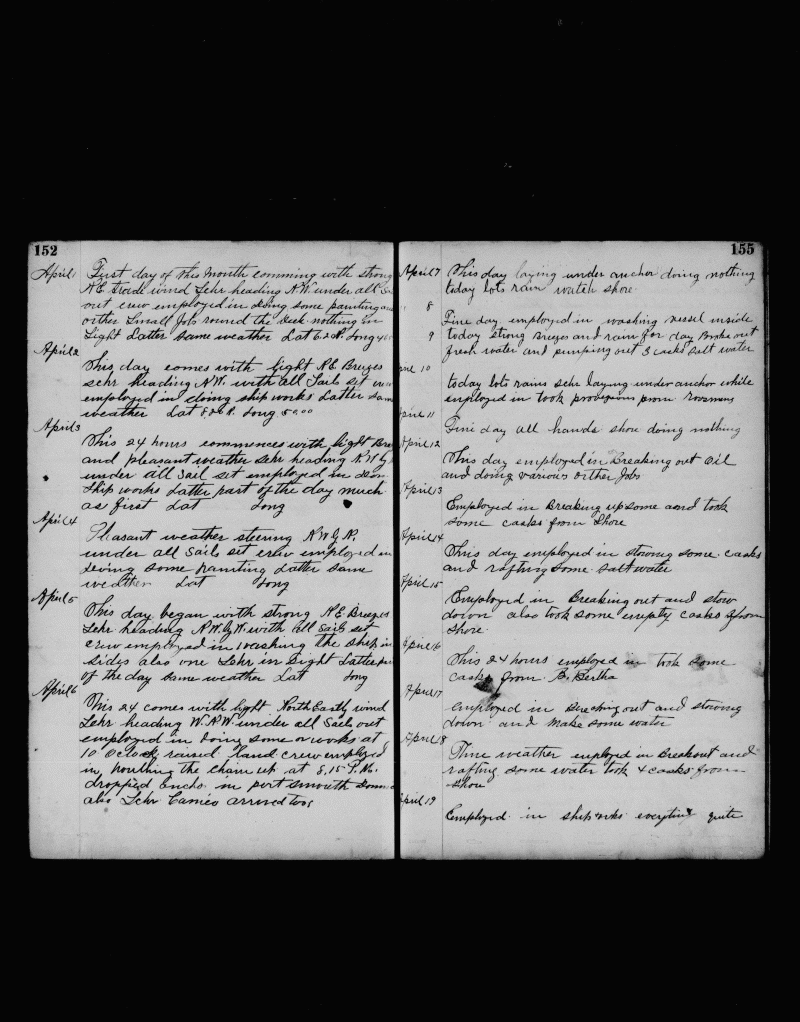 152
April 1 First day of this Month comming with strong
N.E. trade wind Schr heading N.W. under all
out crew employed in doing some painting
other Small Job round the deck nothing in
Sight Latter same weather Lat Long
April 2
This day comes with light N.E. Breezes
schr heading N.W. with all Sails set
employed in doing ship works Latter same
weather Lat Long
April 3
This 24 hours commences with light
and pleasant weather schr heading N.W.
under all sail set employed in
ship works Latter part of the day much
as first Lat Long
April 4
Pleasant weather steering N.W.
under all Sails set crew employed in
some painting Latter same
weather Lat Long
April 5
This day began with strong N.E. Breezes
Schr heading N.W. by W. with all sails set
crew employed in washing the ship in
sides also one Schr in Sight Latter
of the day same weather Lat Long
April 6
This 24 comes with light North Eastly wind
Schr heading W.N.W. under all Sails out
employed in doing some works at
10 O clock raised Hand crew employed
in houlling the chain up at 8,15 P.M.
dropped in port
also Schr Cameo arrived too
155
April 7 This day laying under anchor doing nothing
today lots rain watch shore
8
Fine day employed in washing vessel inside
9 today strong Breezes and rain for day Broke out
fresh water and pumping out 3 casks salt water
10
today lots rains schr laying under anchor while
employed in took provisions from
11
Fine day all hands shore doing nothing
April 12
This day employed in Breaking out Oil
and doing various other Jobs
April 13
Employed in Breaking up some and took
some casks from Shore
April 14
This day employed in stowing some casks
and rafting some salt water
April 15
Employed in Breaking out and stow
down also took some empty casks from
Shore
April 16
This 24 hours employed in took some
casks from B. Bertha
April 17
employed in Breaking out and stowing
down and make some water
April 18
Fine weather employed in Breakout and
rafting some water took 4 casks from
shore
April 19
Employed in ship works quite